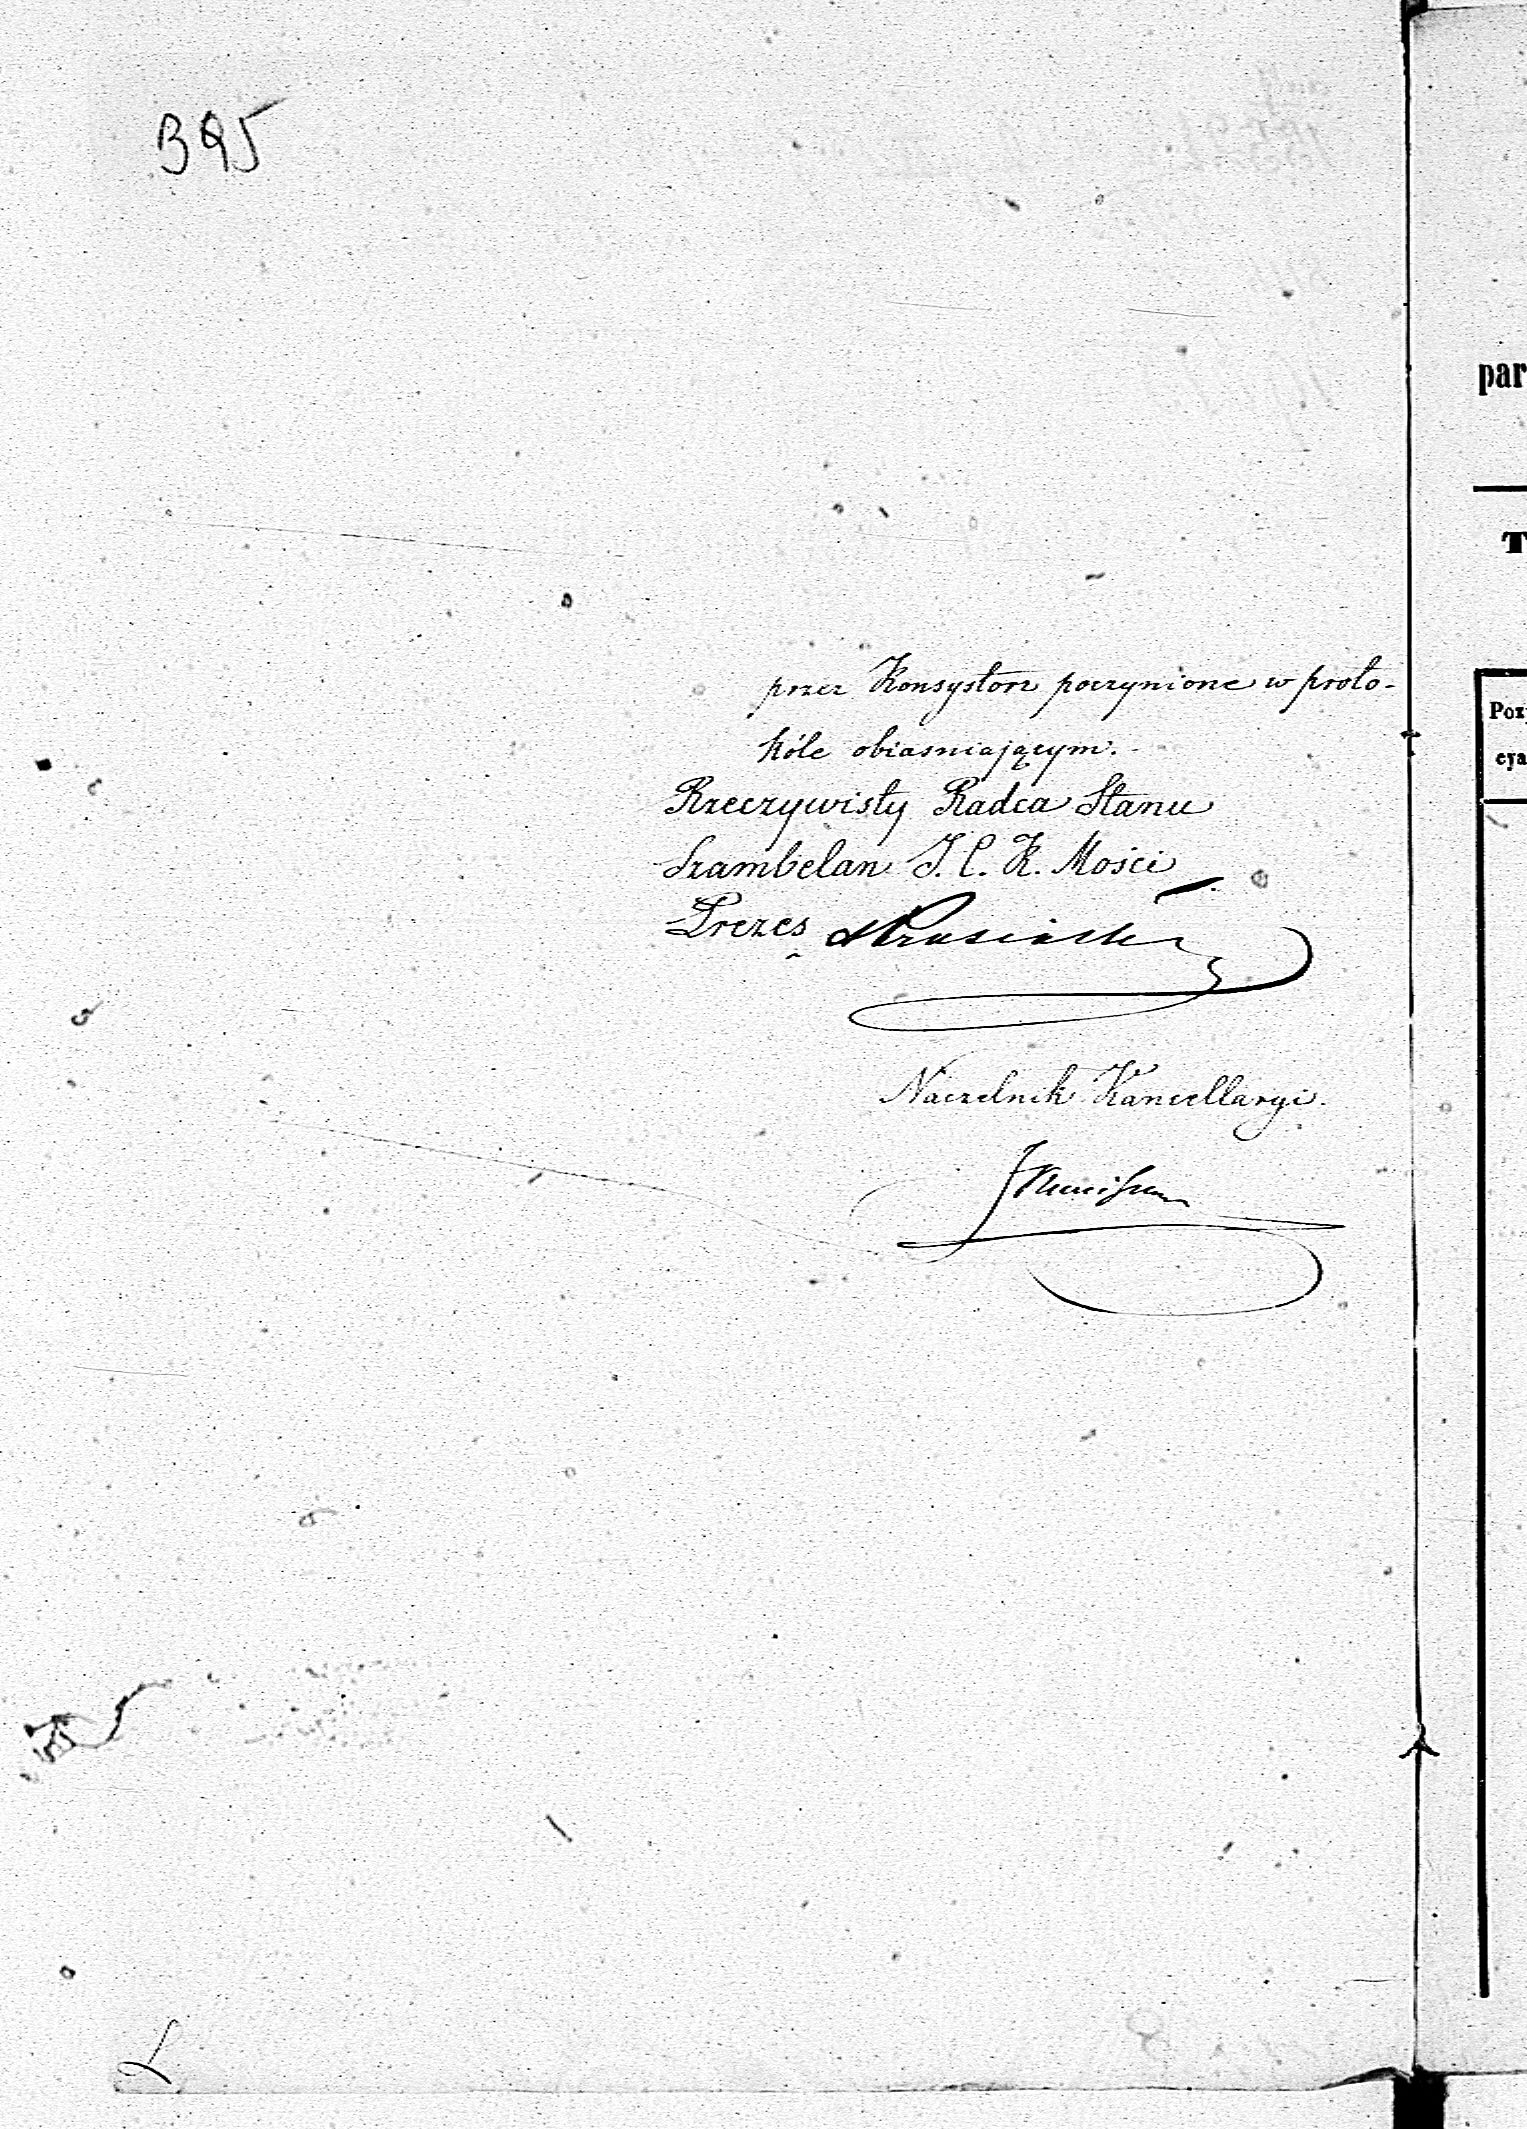 395
przez Konsystorz poczynione w proto-
kóle obiasniającym.
Rzeczywisty Radca Stanu
Szambelan J. C. K. Mości
Prezes
Naczelnik Kancellaryi.
par
T
Poz
cya
L